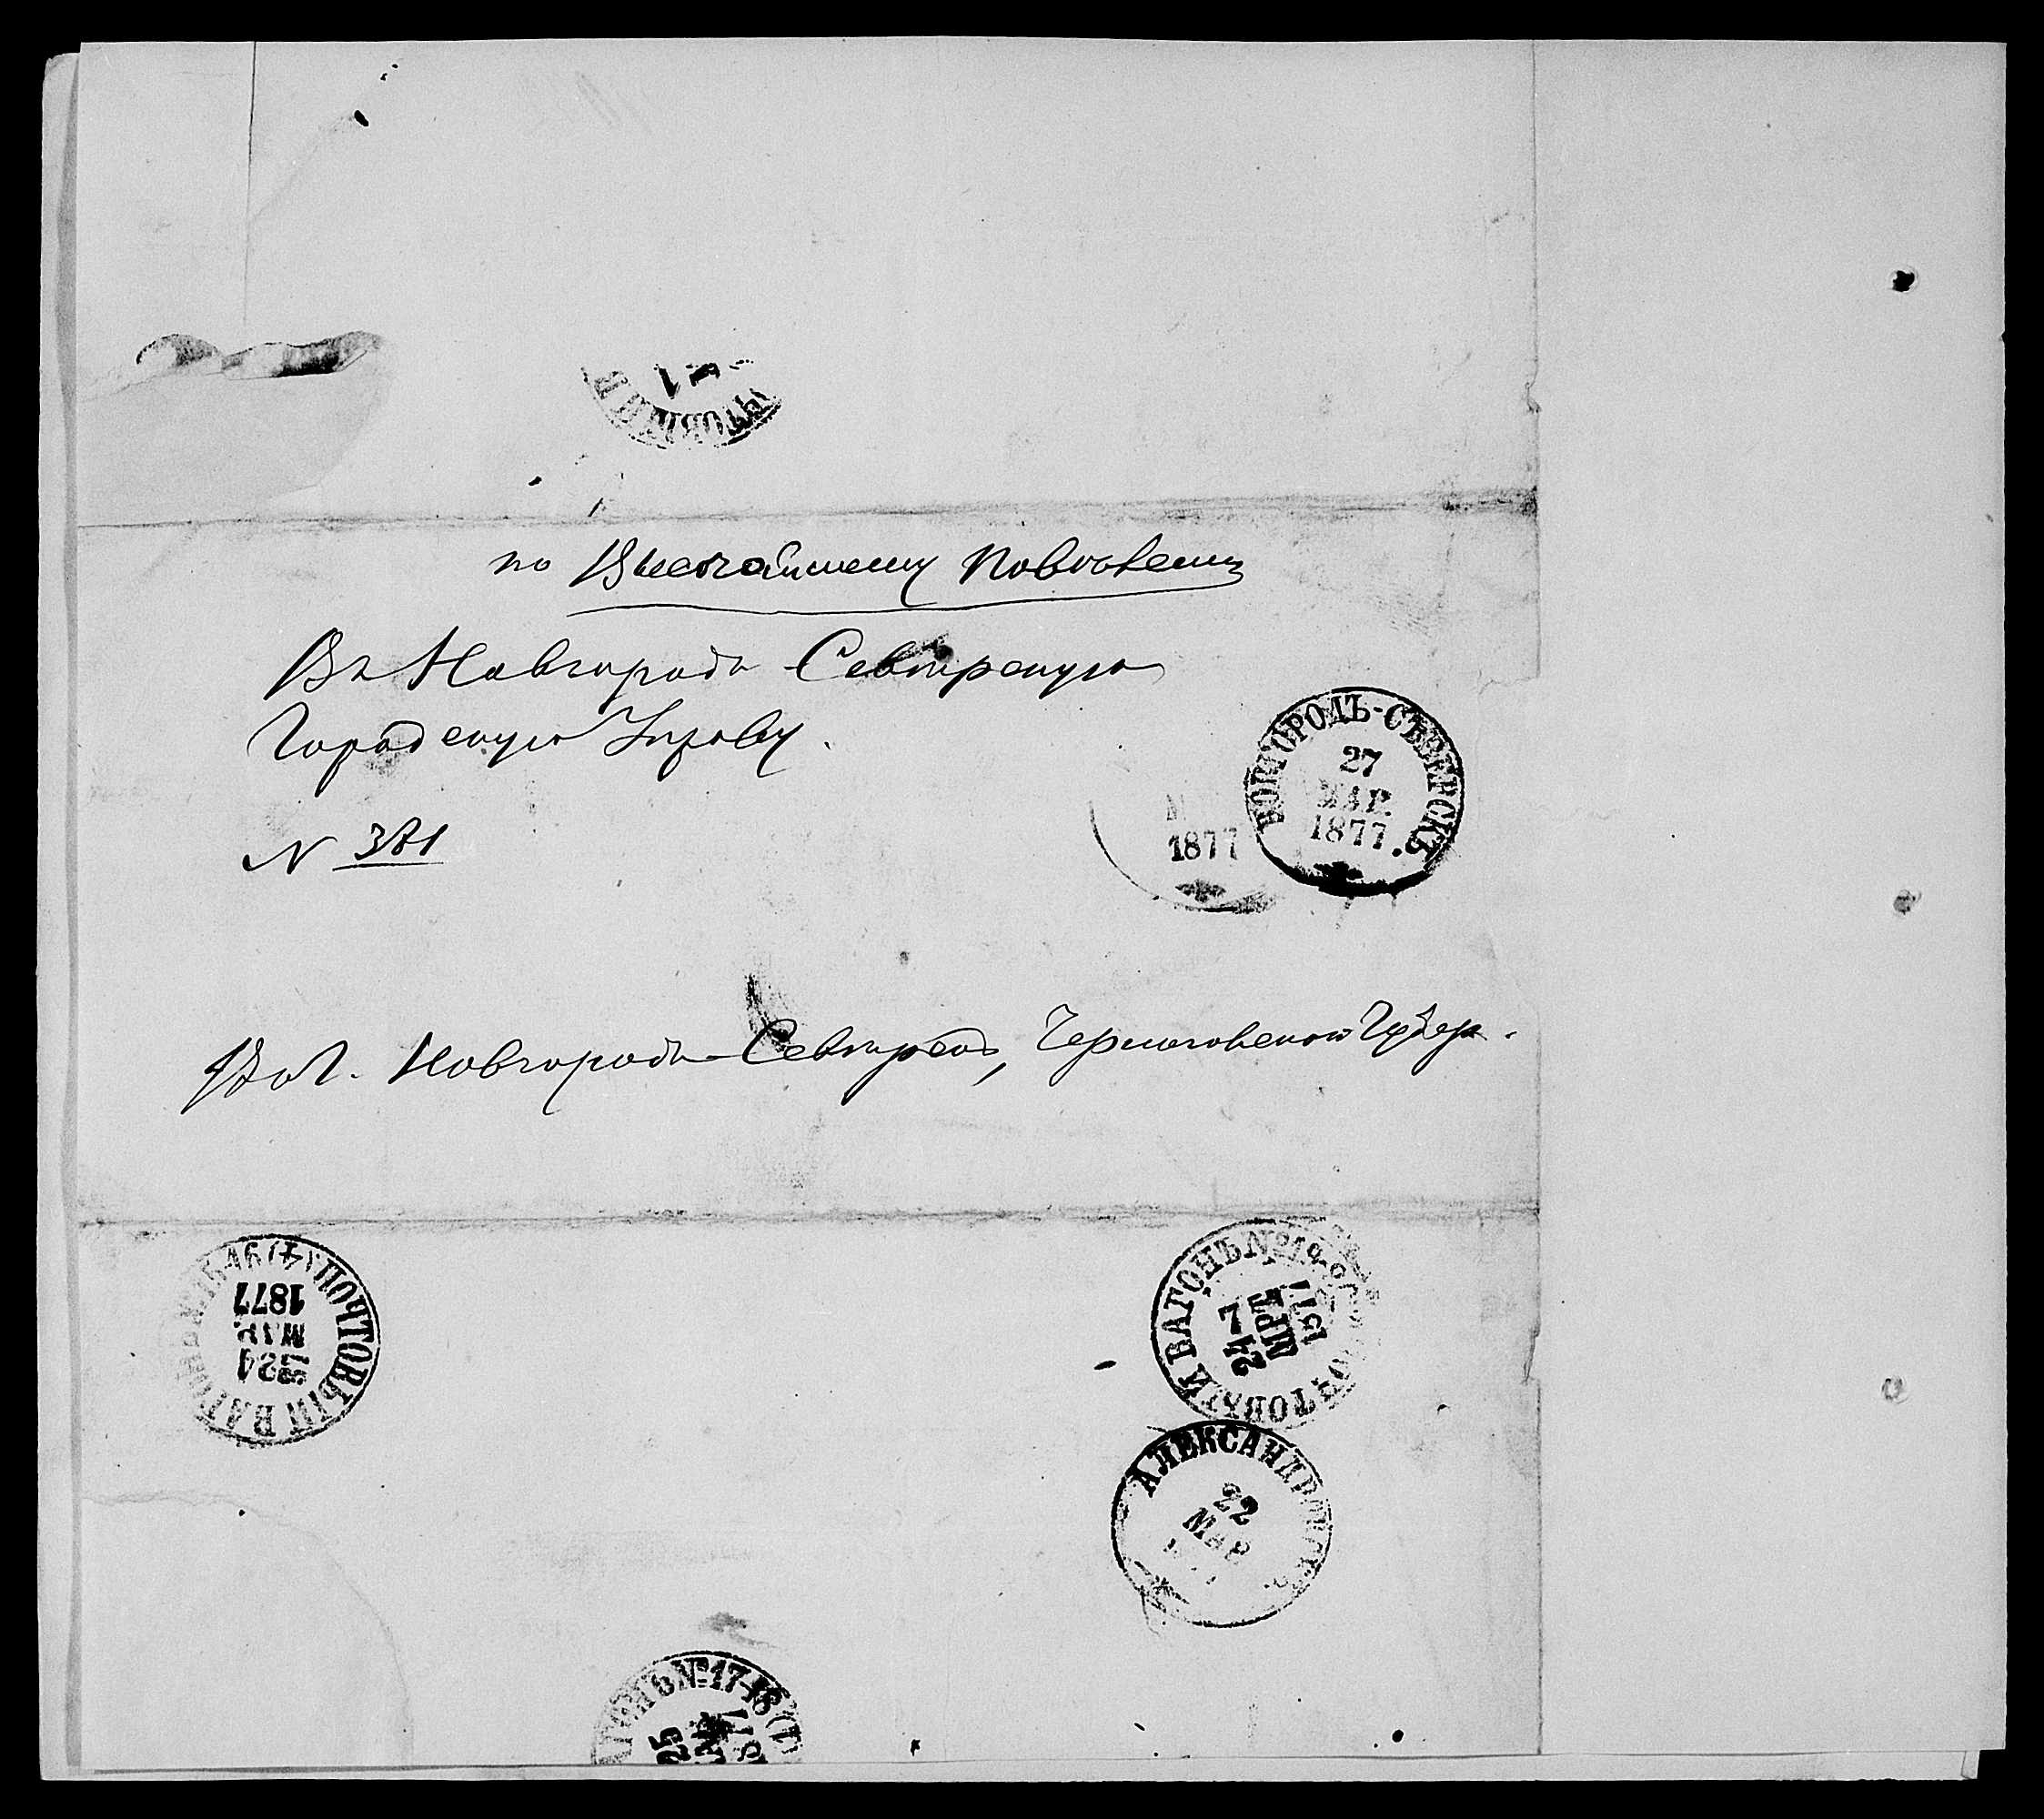 ПОЧТОВЫЙ
1
по Высочайшему Повелению
Въ Новгородъ-Северскую
Городскую Управу.
№ 381
НОВГОРОДЪ-СѢВЕРСКЪ
27
МАР.
1877.
1877
Въ г. Новгородъ-Северскъ, Черниговской Губер.
ПОЧТОВЫЙ ВАГОНЪ
24
МАР.
1877
ПОЧТОВЫЙ ВАГОНЪ №
24
МРТ
АЛЕКСАНДРОВСКЪ
22
МАР
ВАГОНЪ № 17-18 (1)
25